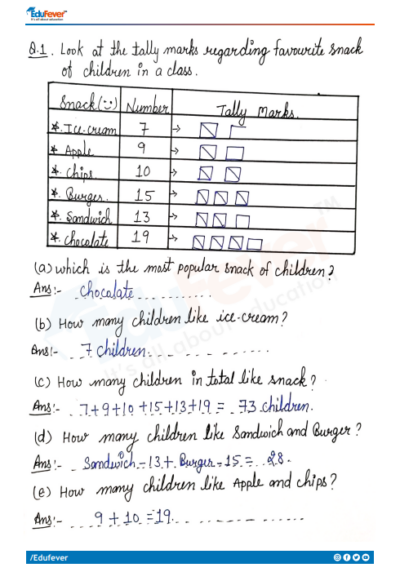 EduFever
It's all about education
Q.1. Look at the tally marks regarding favourite snack
of children in a class.
Snack(:)) Number Tally Marks.
*. Ice-cream 7 →
*. Apple 9 →
*. Chips. 10 →
*. Burger. 15 →
*. Sandwich. 13 →
*. Chocolate 19 →
(a) which is the most popular snack of children?
Ans:- Chocolate
(b) How many children like ice-cream?
Ans:- 7 children.
(c) How many children in total like snack?
Ans:- 7+9+10+15+13+19 = 73 children.
(d) How many children like Sandwich and Burger?
Ans:- Sandwich-13+ Burger-15 = 28.
(e) How many children like Apple and chips?
Ans:- 9 + 10 = 19
/Edufever